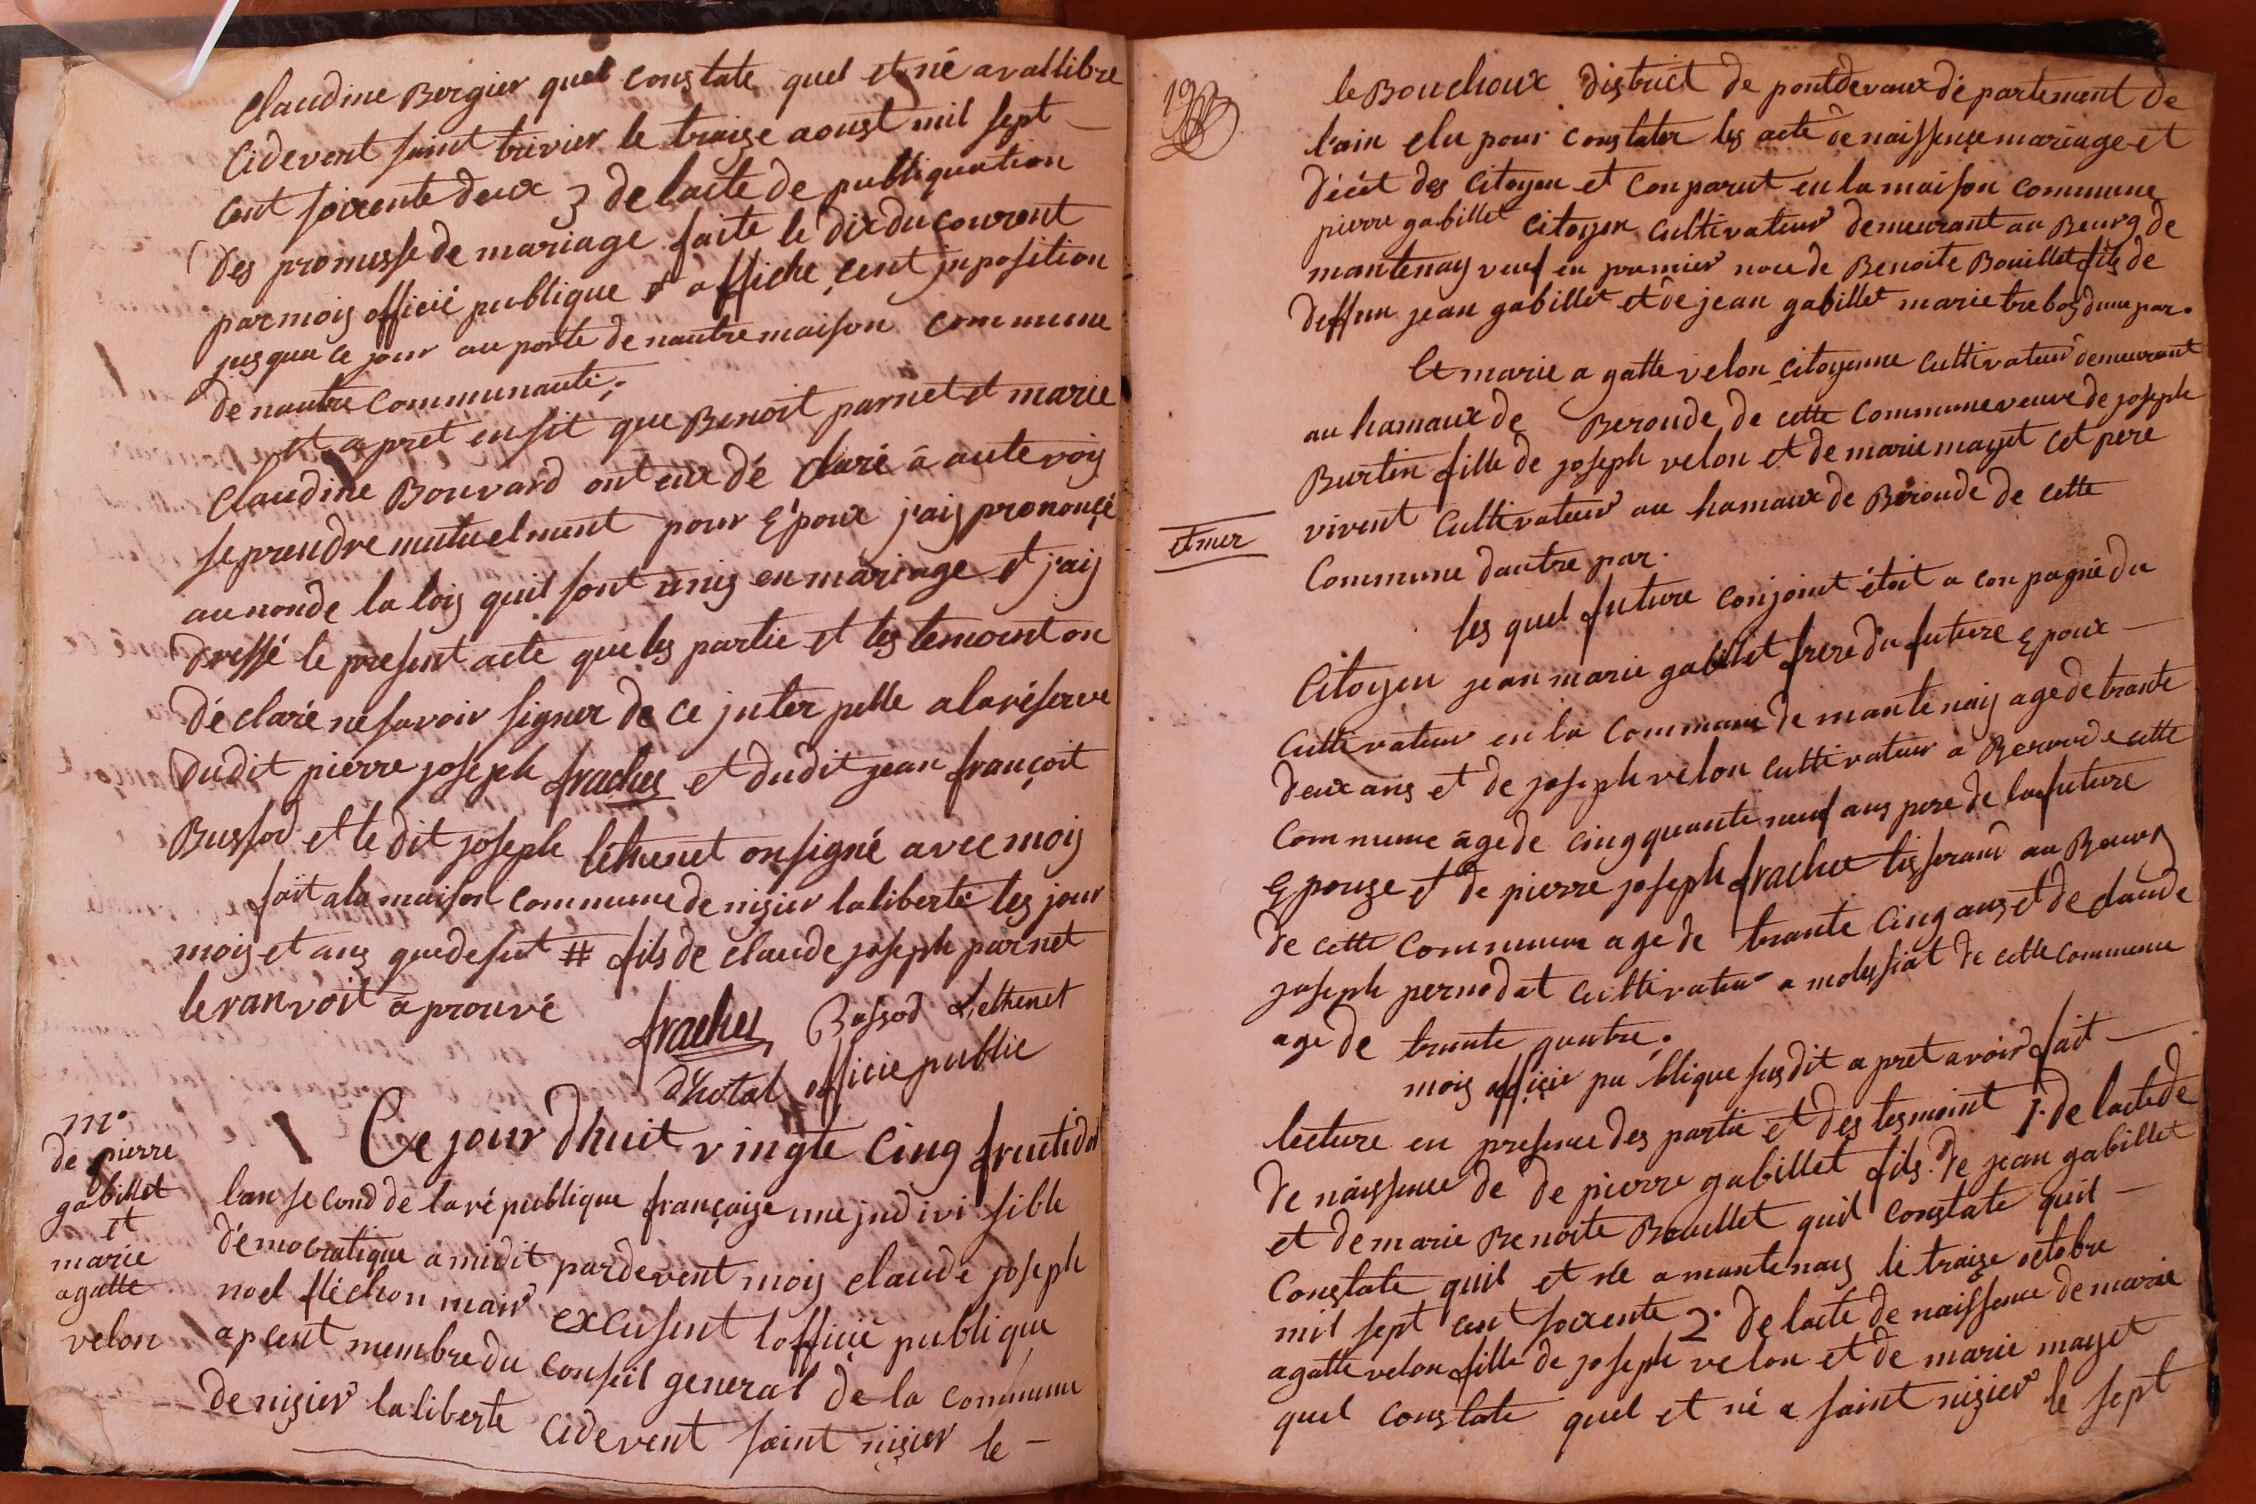 Claudine Bergier quel constate quel et né a vallibre
cidevent saint trivier le traize aoust mil sept
cent soixente deux 3 de lacte de publiquation
des promesse de mariage faite le dix du courent
par mois officié publique et affiché cent inposition
jusqua ce jour au porte de nautre maison commune
de nautre communauté;
et apret ensit que Benoit parnet et marie
Claudine Bouvard ont eux dé claré à aute vois
se prendre mutuelment pour Epoux j'ais prononcé
au nonde la lois quil sont unis en mariage et j'ais
dressé le present acte que les partie et les temoint on
déclaré ne savoir signer de ce juter pelle a la réserve
dudit pierre joseph frachet et dudit jean françoit
Bussod et le dit joseph léthenet on signé avec mois
fait a la maison commune de nizier la liberté les jour
mois et ans que desut # fils de claude joseph parnet
le ranvoit aprouvé
frachet Bussod Lethenet
dhotal officié public
mo
de pierre
gabillet
et
marie
agatte
velon
Ce jour dhuit vingte cinq fructidor
lan second de la république françaize une jndivisible
démocratique a midit pardevent mois claude joseph
noel fléchon mair excusent lofficié publique
apcent membre du conseil general de la commune
de nizier la liberte cidevent saint nizier le
19
le Bouchoux district de pontdevaux département de
lain elu pour constater les acte de naissence mariage et
décét des citoyen et conparut en la maison commune
pierre gabillet citoyen cultivateur demeurant au Beurg de
mantenay veuf en promier nou de Benoite Bouillet fils de
deffun jean gabillet et de jean gabillet marie treboz dune par.
Et marie agatte velon citoyenne cultivateur demeurant
au hamaux de Beroude de cette commune veuve de joseph
Burtin fille de joseph velon et de marie mayet cet pere
et mer
vivent cultivateur au hamaux de Beroude de cette
commune dautre par.
les quel future conjoint étoit a conpagné du
Citoyen jean marie gabillet frere du future Epoux
cultivateur en la commune de mantenay age de trante
deux ans et de joseph velon cultivateur a Beroude cette
commune âge de cinqquante neuf ans pere de la future
Epouze et de pierre joseph frachet tisserand au Beurg
de cette commune age de trante cinq ans et de claude
joseph pernodat cultivateur a molissiat de cette commune
age de trante quatre.
mois officié publique susdit apret avoir fait
lecture en presence des partie et des tesmoint 1. de lacte de
de naissence de de pierre gabillet fils de jean gabillet
et de marie Benoite Bouillet quil constate quil
Constate quil et né a mantenay le traize octobre
mil sept cent soixente 2o de lacte de naissence de marie
agatte velon fille de joseph velon et de marie mayet
quel constate quel et né a saint nizier le sept